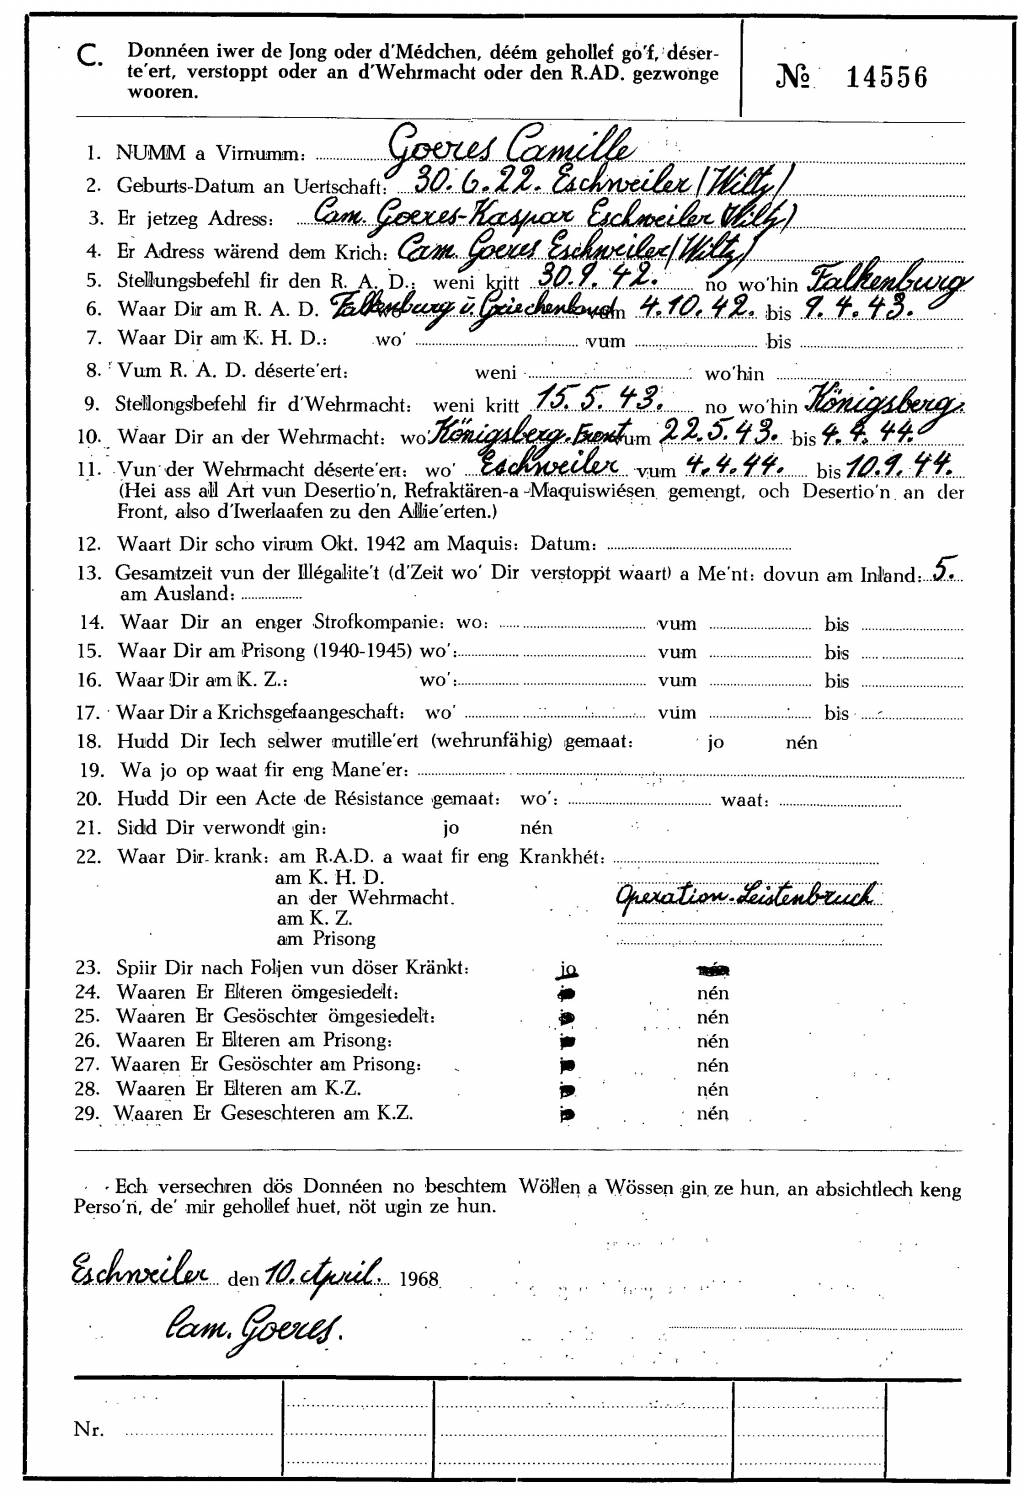 C. Donnéen iwer de Jong oder d'Médchen, déém gehollef go'f, déser-
te'ert, verstoppt oder an d'Wehrmacht oder den R.AD. gezwonge
wooren.
No 14556
1. NUMM a Virnumm: Goeres Camille
2. Geburts-Datum an Uertschaft: 30.6.22. Eschweiler/Wiltz)
3. Er jetzeg Adress: Cam. Goeres-Kaspar Eschweiler Wiltz)
4. Er Adress wärend dem Krich: Cam. Goeres Eschweiler/Wiltz)
5. Stellungsbefehl fir den R. A. D.: weni kritt 30.9.42. no wo'hin Falkenburg
6. Waar Dir am R. A. D. Falkenburg u. Griechenland vum 4.10.42. bis 9.4.43.
7. Waar Dir am K. H. D.: wo' vum bis
8. Vum R. A. D. déserte'ert: weni wo'hin
9. Stellongsbefehl fir d'Wehrmacht: weni kritt 15.5.43. no wo'hin Königsberg.
10. Waar Dir an der Wehrmacht: wo' Königsberg. Front vum 22.5.43. bis 4.4.44.
11. Vun der Wehrmacht déserte'ert: wo' Eschweiler vum 4.4.44. bis 10.9.44.
(Hei ass all Art vun Desertio'n, Refraktären-a -Maquiswiésen gemengt, och Desertio'n an der
Front, also d'Iwerlaafen zu den Allie'erten.)
12. Waart Dir scho virum Okt. 1942 am Maquis: Datum:
13. Gesamtzeit vun der Illégalite't (d'Zeit wo' Dir verstoppt waart) a Me'nt: dovun am Inland: 5.
am Ausland:
14. Waar Dir an enger Strofkompanie: wo: vum bis
15. Waar Dir am Prisong (1940-1945) wo': vum bis
16. Waar Dir am K. Z.: wo': vum bis
17. Waar Dir a Krichsgefaangeschaft: wo' vum bis
18. Hudd Dir Iech selwer mutille'ert (wehrunfähig) gemaat: jo nén
19. Wa jo op waat fir eng Mane'er:
20. Hudd Dir een Acte de Résistance gemaat: wo': waat:
21. Sidd Dir verwondt gin: jo nén
22. Waar Dir krank: am R.A.D. a waat fir eng Krankhét:
am K. H. D.
an der Wehrmacht. Operation. Leistenbruch
am K. Z.
am Prisong
23. Spiir Dir nach Foljen vun döser Kränkt: jo nén
24. Waaren Er Elteren ömgesiedelt: jo nén
25. Waaren Er Gesöschter ömgesiedelt: jo nén
26. Waaren Er Elteren am Prisong: jo nén
27. Waaren Er Gesöschter am Prisong: jo nén
28. Waaren Er Elteren am K.Z. jo nén
29. Waaren Er Geseschteren am K.Z. jo nén
Ech versechren dös Donnéen no beschtem Wöllen a Wössen gin ze hun, an absichtlech keng
Perso'n, de' mir gehollef huet, nöt ugin ze hun.
Eschweiler den 10. April. 1968
Cam. Goeres.
Nr.